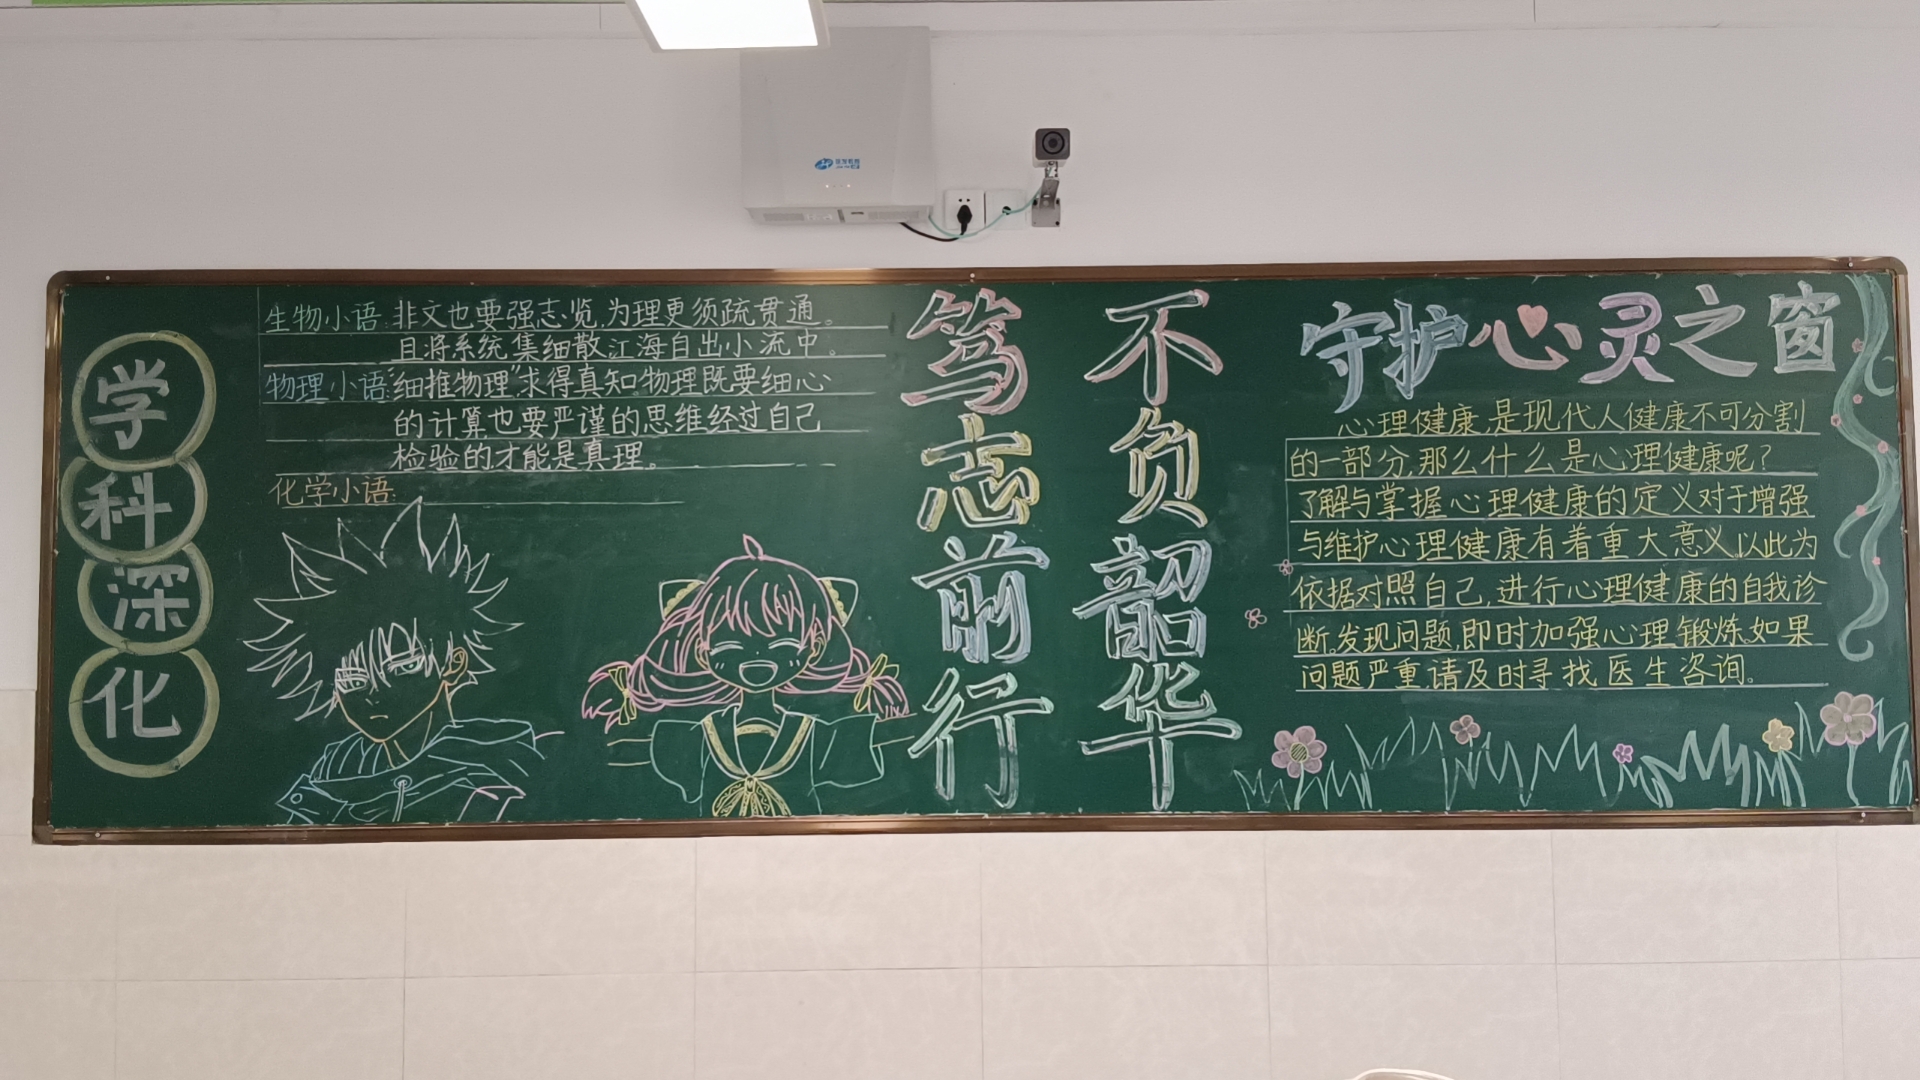 学科深化
生物小语:非文也要强志览,为理更须疏贯通。
且将系统集细散,江海自出小流中。
物理小语:“细推物理”求得真知。物理既要细心
的计算也要严谨的思维经过自己
检验的才能是真理。
化学小语:
笃志前行
不负韶华
守护心灵之窗
心理健康,是现代人健康不可分割
的一部分,那么什么是心理健康呢?
了解与掌握心理健康的定义对于增强
与维护心理健康有着重大意义,以此为
依据对照自己,进行心理健康的自我诊
断。发现问题,即时加强心理锻炼。如果
问题严重,请及时寻找医生咨询。